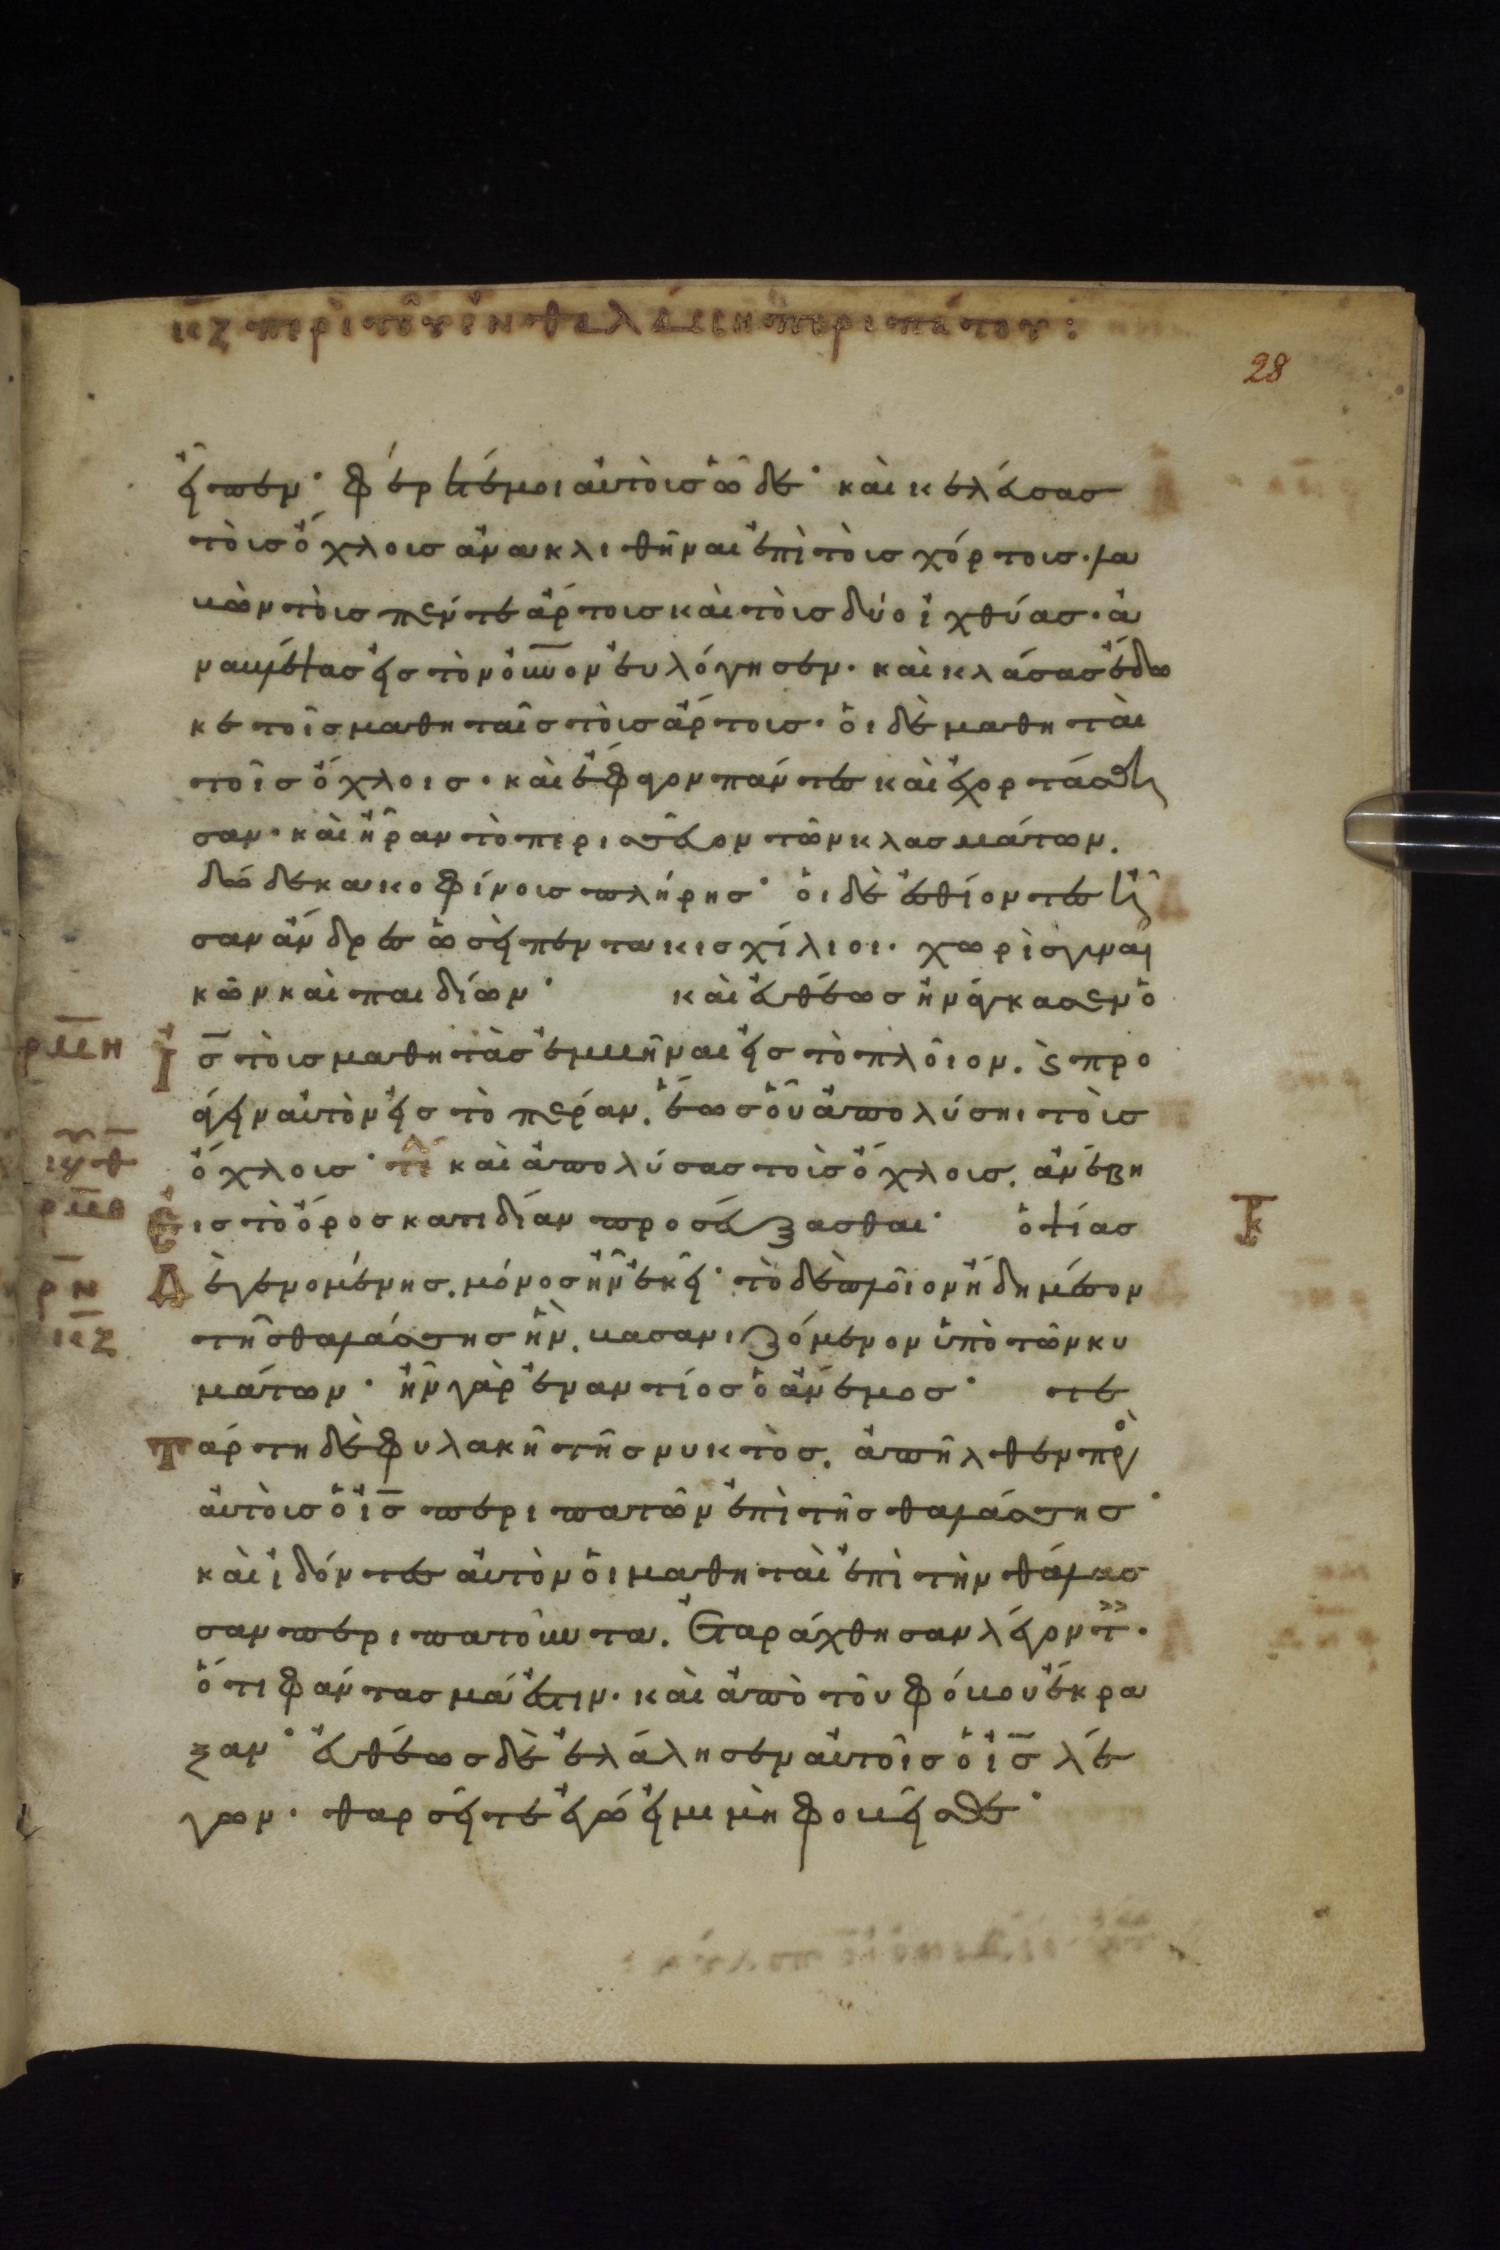 κζ περὶ τοῦ ἐν θαλάσση περιπάτου:
28
εἶπεν· φέρετέ μοι αὐτοὺς ὧδε· καὶ κελεύσας
τοὺς ὄχλους ἀνακλιθῆναι ἐπὶ τοὺς χόρτους· λα
βὼν τοὺς πέντε ἄρτους καὶ τοὺς δύο ἰχθύας· ἀ
ναβλέψας εἰς τὸν οὐνον εὐλόγησεν· καὶ κλάσας ἔδω
κε τοῖς μαθηταῖς τοὺς ἄρτους· οἱ δὲ μαθηταὶ
τοῖς ὄχλοις· καὶ ἔφαγον πάντες καὶ ἐχορτάσθη
σαν· καὶ ἦραν τὸ περισσεῦον τῶν κλασμάτων.
δώδεκα κοφίνους πλήρης· οἱ δὲ ἐσθίοντες ἦ
σαν ἄνδρες ὡσεὶ πεντακισχίλιοι· χωρὶς γυναι
κῶν καὶ παιδίων· καὶ εὐθέως ἠνάγκασεν ὁ
ρμη ἰς τοὺς μαθητὰς ἐμβῆναι εἰς τὸ πλοῖον. ϗ προ
άγειν αὐτὸν εἰς τὸ πέραν. ἕως οὗ ἀπολύσηι τοὺς
ὄχλους· τέ καὶ ἀπολύσας τοὺς ὄχλους. ἀνέβη
ρμθ εἰς τὸ ὄρος κατιδίαν προσεύξασθαι· ὀψίας
ρν δὲ γενομένης. μόνος ἦν ἐκεῖ· τὸ δὲ πλοῖον ἤδη μέσον
κζ τῆς θαλάσσης ἦν. βασανιζόμενον ὑπὸ τῶν κυ
μάτων· ἦν γὰρ ἐναντίος ὁ ἄνεμος· τε
τάρτη δὲ φυλακῆ τῆς νυκτὸς. ἀπῆλθεν πρὸ
αὐτοὺς ὁ ἰς περιπατῶν ἐπὶ τῆς θαλάσσης·
καὶ ἰδόντες αὐτὸν οἱ μαθηταὶ ἐπὶ τὴν θάλασ
σαν περιπατοῦντα. ἐταράχθησαν λέγοντ·
ὅτι φάντασμά ἐστιν· καὶ ἀπὸ τοῦ φόβου ἔκρα
ξαν· εὐθέως δὲ ἐλάλησεν αὐτοῖς ὁ ἰς λέ
γων· θαρσεῖτε ἐγώ εἰμι μὴ φοβεῖσθε·